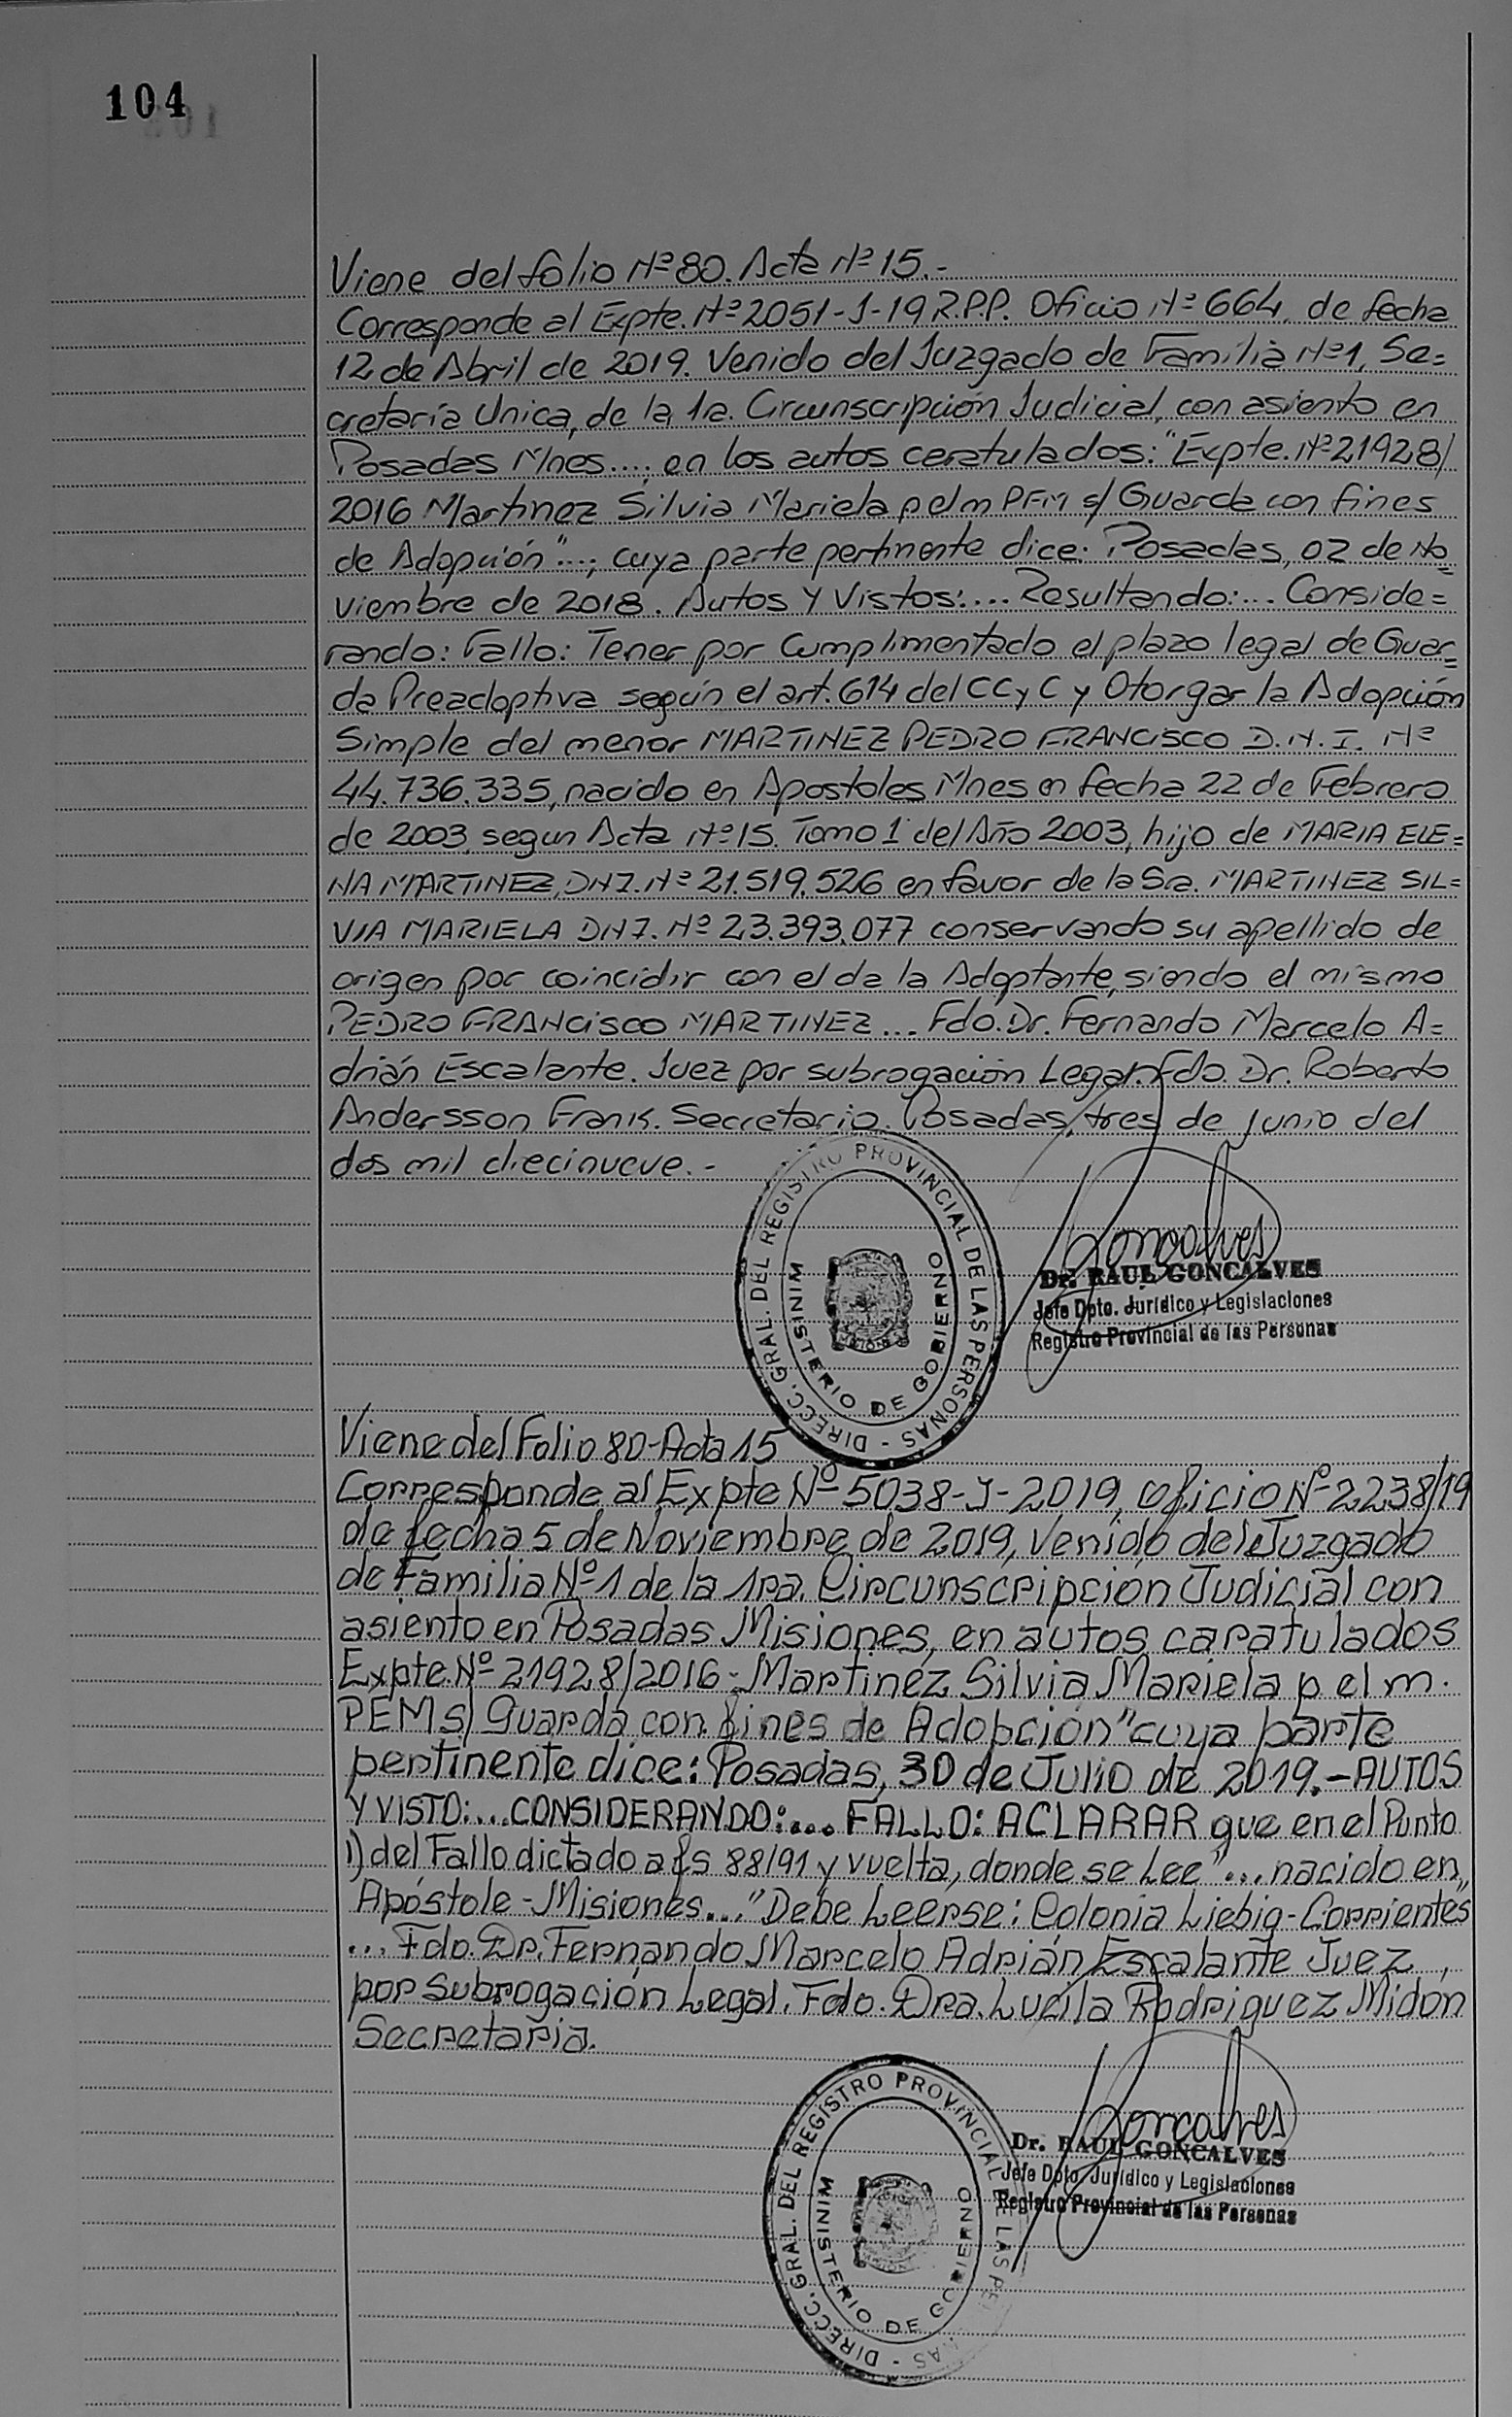 104
Viene del folio Nº 80. Acta Nº 15.-
Corresponde al Expte. Nº 2051-J-19 R.P.P. Oficio Nº 664, de fecha
12 de Abril de 2019. Venido del Juzgado de Familia Nº 1, Se=
cretaría Unica, de la 1a. Circunscripción Judicial, con asiento en
Posadas Mnes...; en los autos ceratulados: "Expte. Nº 21928/
2016 Martinez Silvia Mariela p el m PFM s/ Guarda con fines
de Adopción"...; cuya parte pertinente dice: Posadas, 02 de No=
viembre de 2018. Autos y Vistos:... Resultando:... Conside=
rando: Fallo: Tener por Cumplimentado el plazo legal de Guar=
da Preadoptiva según el art. 614 del CC y C y Otorgar la Adopción
Simple del menor MARTINEZ PEDRO FRANCISCO D.N.I. Nº
44.736.335, nacido en Apostoles Mnes en fecha 22 de Febrero
de 2003, segun Acta Nº 15. Tomo 1 del Año 2003, hijo de MARIA ELE=
NA MARTINEZ, DNI. Nº 21.519.526 en favor de la Sra. MARTINEZ SIL=
VIA MARIELA DNI. Nº 23.393.077 conservando su apellido de
origen por coincidir con el de la Adoptante, siendo el mismo
PEDRO FRANCISCO MARTINEZ... Fdo. Dr. Fernando Marcelo A=
drián Escalante. Juez por subrogación Legal. Fdo. Dr. Roberto
Andersson Frank. Secretario. Posadas, tres de Junio del
dos mil diecinueve.-
DIRECC. GRAL. DEL REGISTRO PROVINCIAL DE LAS PERSONAS -
MINISTERIO DE GOBIERNO
Goncalves
Dr. RAUL GONCALVES
Jefe Dpto. Jurídico y Legislaciones
Registro Provincial de las Personas
Viene del Folio 80-Acta 15
Corresponde al Expte Nº 5038-J-2019, oficio Nº 2238/19
de fecha 5 de Noviembre de 2019, venido del Juzgado
de Familia Nº 1 de la 1ra. Circunscripción Judicial con
asiento en Posadas Misiones, en autos caratulados
Expte. Nº 21928/2016-Martinez Silvia Mariela p el m.
PEM S/ Guarda con fines de Adopción" cuya parte
pertinente dice: Posadas, 30 de Julio de 2019.-AUTOS
Y VISTO:...CONSIDERANDO:... FALLO: ACLARAR que en el Punto
1) del Fallo dictado a fs 88/91 y vuelta, donde se Lee "... nacido en
Apóstole-Misiones..." Debe Leerse: Colonia Liebig-Corrientes"
... Fdo. Dr. Fernando Marcelo Adrián Escalante Juez
por Subrogación Legal. Fdo. Dra. Lucila Rodriguez Midón
Secretaria.
DIRECC. GRAL. DEL REGISTRO PROVINCIAL DE LAS PE NAS -
MINISTERIO DE GOBIERNO
Goncalves
Dr. RAUL GONCALVES
Jefe Dpto. Jurídico y Legislaciones
Registro Provincial de las Personas